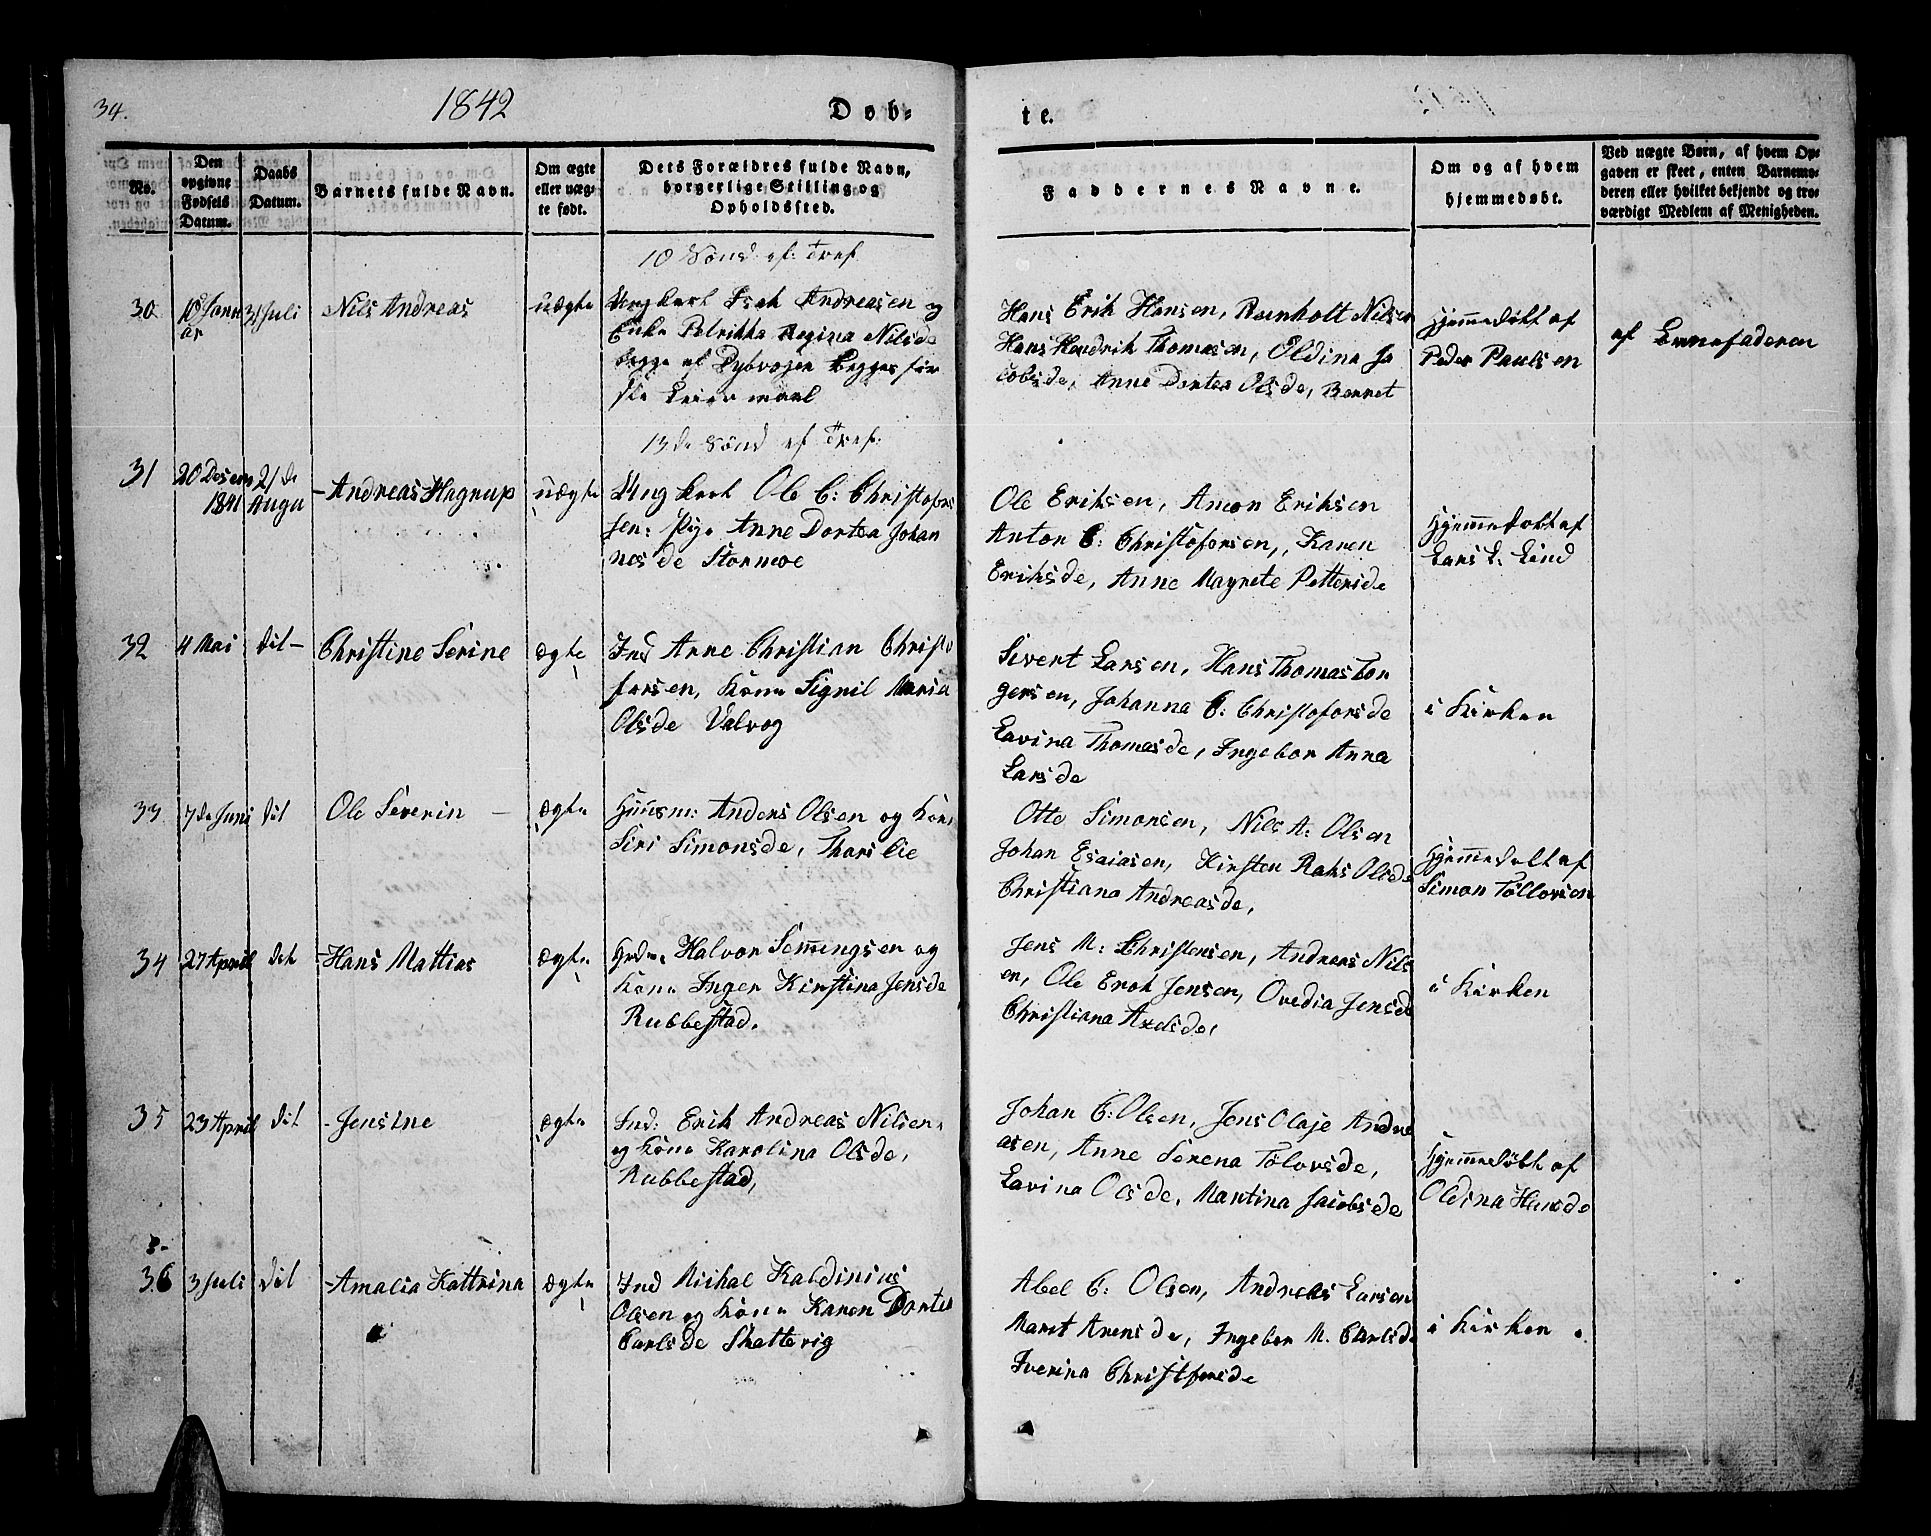 34.
1842
Døb-
te.
No.
Den
opgivne
Fødsels
Datum.
Daabs
Datum.
Barnets fulde Navn.
Om ægte
eller uæg-
te født.
Dets Forældres fulde Navn,
borgerlige Stilling og
Opholdssted.
Faddernes Navne.
Om og af hvem
hjemmedøbt.
Ved uægte Børn, af hvem Op-
gaven er skeet, enten Barnemo-
deren eller hvilket bekjendt og tro-
værdigt Medlem af Menigheden.
10 Sønd ef: Tref
30
18 Janu
ar
31 Juli
Nils Andreas
uægte
Ungkarl Isak Andreasen og
Enke Petrikka Regina Nilsde
begge af Dybvogen begges før
ste Leiermaal
Hans Erik Hansen, Reinholt Nilsen
Hans Hendrik Thomasen, Oldina Ja
cobsde, Anne Dortea Olsde, Bernet
Hjemmedøbt af
Peder Paulsen
af Barnefaderen
13de Sønd ef Tref:
31
20 Desem
1841
21de
Augu
Andreas Hagrup
uægte
Ungkarl Ole C: Christofer
sen: Pige Anne Dortea Johan
nesde Stormoe
Ole Eriksen, Amon Eriksen
Anton C: Christofersen, Karen
Eriksde, Anne Magrete Pettersde
Hjemmedøbt af
Lars L: Lind
32
4 Mai
dit
Christine Serine
ægte
Ind Arne Christian Christo
fersen, Kone Signil Maria
Olsde Valvog
Sivert Larsen, Hans Thomas Tor
gersen, Johanna C: Christofersde
Lavina Thomasde, Ingebor Anna
Larsde
i Kirken
33
7de Juni
dit
Ole Severin
ægte
Huusm: Anders Olsen og Kone
Siri Simonsde, Thorslie
Otte Simonsen, Nils A: Olsen
Johan Esaiasen, Kirsten Raks Olsde
Christiana Andreasde,
Hjemmedøbt af
Simon Tollovsen
34
27 April
dit
Hans Mattias
ægte
Halvor Semmingsen og
Kone Inger Kirstina Jensde
Rubbestad.
Jens M: Christensen, Andreas Nils
en, Ole Erok Jensen, Ovedia Jensde
Christiana Axelsde,
i Kirken
35
23 April
dit
Jensine
ægte
Ind: Erik Andreas Nilsen,
og Kone Karolina Olsde,
Rubbestad,
Johan C: Olsen, Jens Olaje Andre
asen, Anne Serena Tolovsde,
Lavina Olsde, Martina Jacobsde
Hjemmedøbt af
Oldina Hansde
36
3 Juli
dit
Amalia Kattrina
ægte
Ind Michal Kaldinius
Olsen og Kone Karen Dortea
Carlsde Skattevig
Abel C: Olsen, Andreas Larsen
Maret Arensde, Ingebor M. Carlsde
Iverina Christfersde
i Kirken